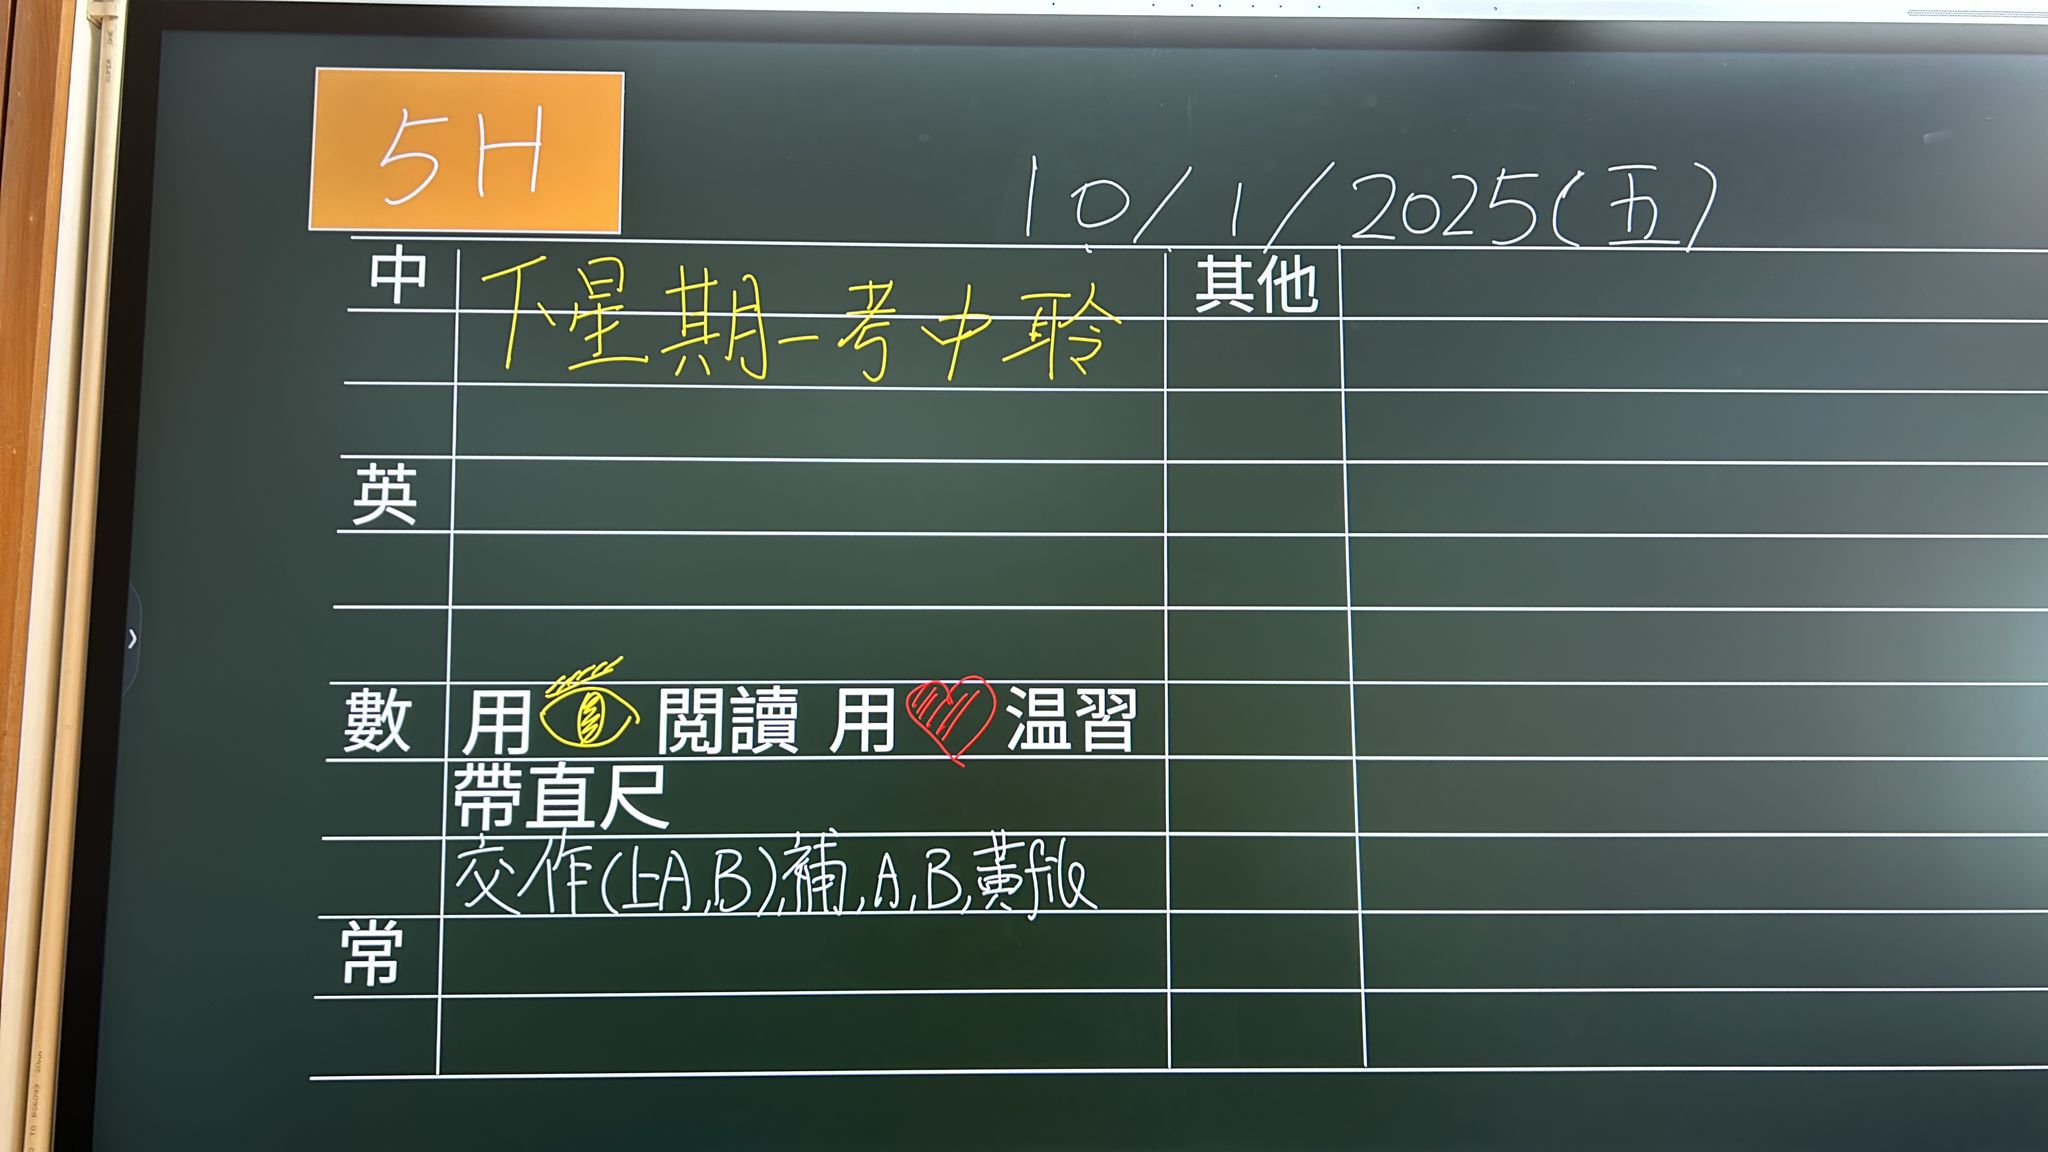 5H
10/1/2025(五)
中 下星期一考中聆 其他
英
數 用 閱讀 用 温習
帶直尺
交作(上A,B),補,A,B,黃file
常